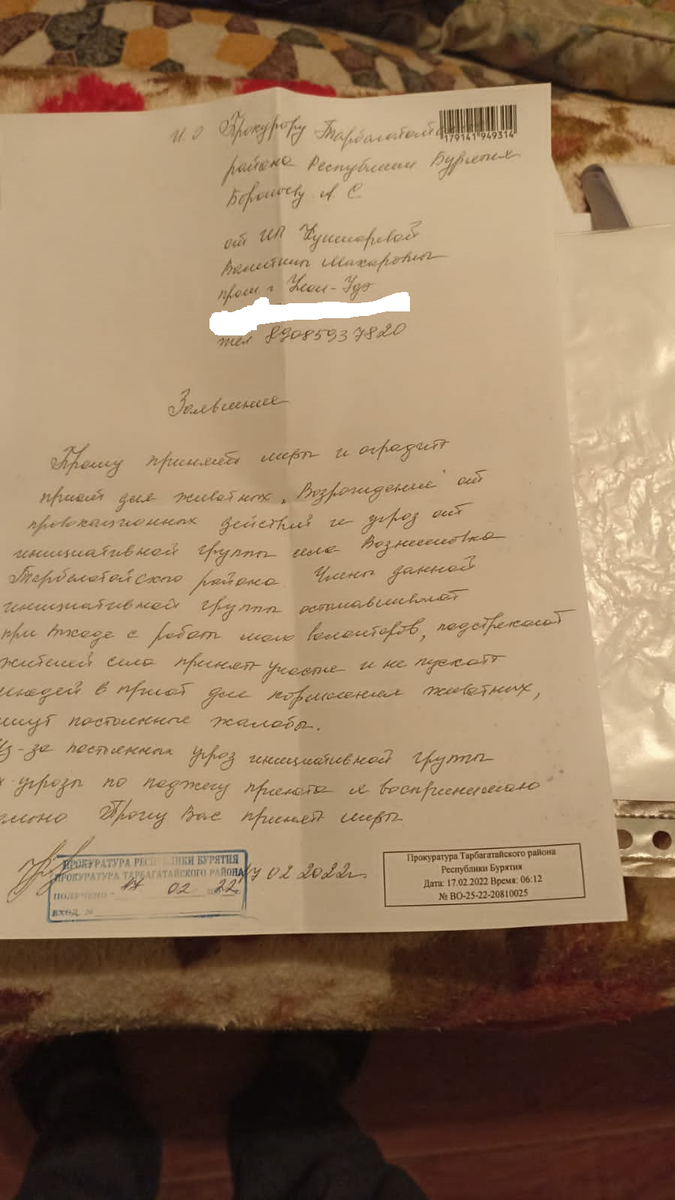 И.О Прокурору Тарбагатайс
179141 949314
района Республики Бурятия
А С
от ИП Кушнаревой
Валентины Макаровны
прож г Улан-Удэ
тел 89085937820
Заявление
Прошу принять меры и оградить
приют для животных „Возрождение" от
провокационных действий и угроз от
инициативной группы села Вознесеновка
Тарбагатайского района Члены данной
инициативной группы останавливают
при въезде с работы моло волонтеров, подстрекают
жителей села принять участие и не пускать
людей в приют для кормления животных,
пишут постоянные жалобы.
Из-за постоянных угроз инициативной группы
угрозы по поджегу приюта я воспринимаю
Прошу Вас принять меры
17 02 2022г.
ПРОКУРАТУРА РЕСПУБЛИКИ БУРЯТИЯ
ПРОКУРАТУРА ТАРБАГАТАЙСКОГО РАЙОНА
ПОЛУЧЕНО 17 02 22
ВХОД. №
Прокуратура Тарбагатайского района
Республики Бурятия
Дата: 17.02.2022 Время: 06:12
№ ВО-25-22-20810025